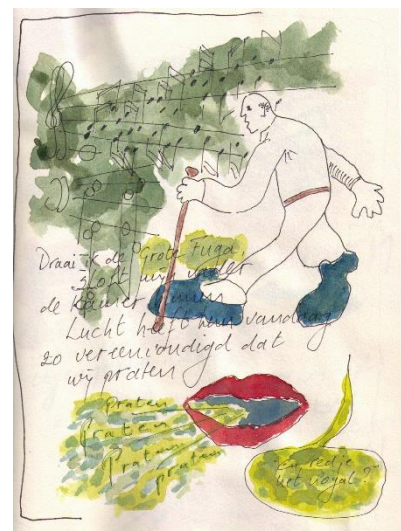 Draai ik de Grote Fuga,
sloft mijn vader
de kamer binnen
Lucht heeft hem vandaag
zo vereenvoudigd dat
wij praten
praten
Praten
Praten
praten
En redje
het nogal?